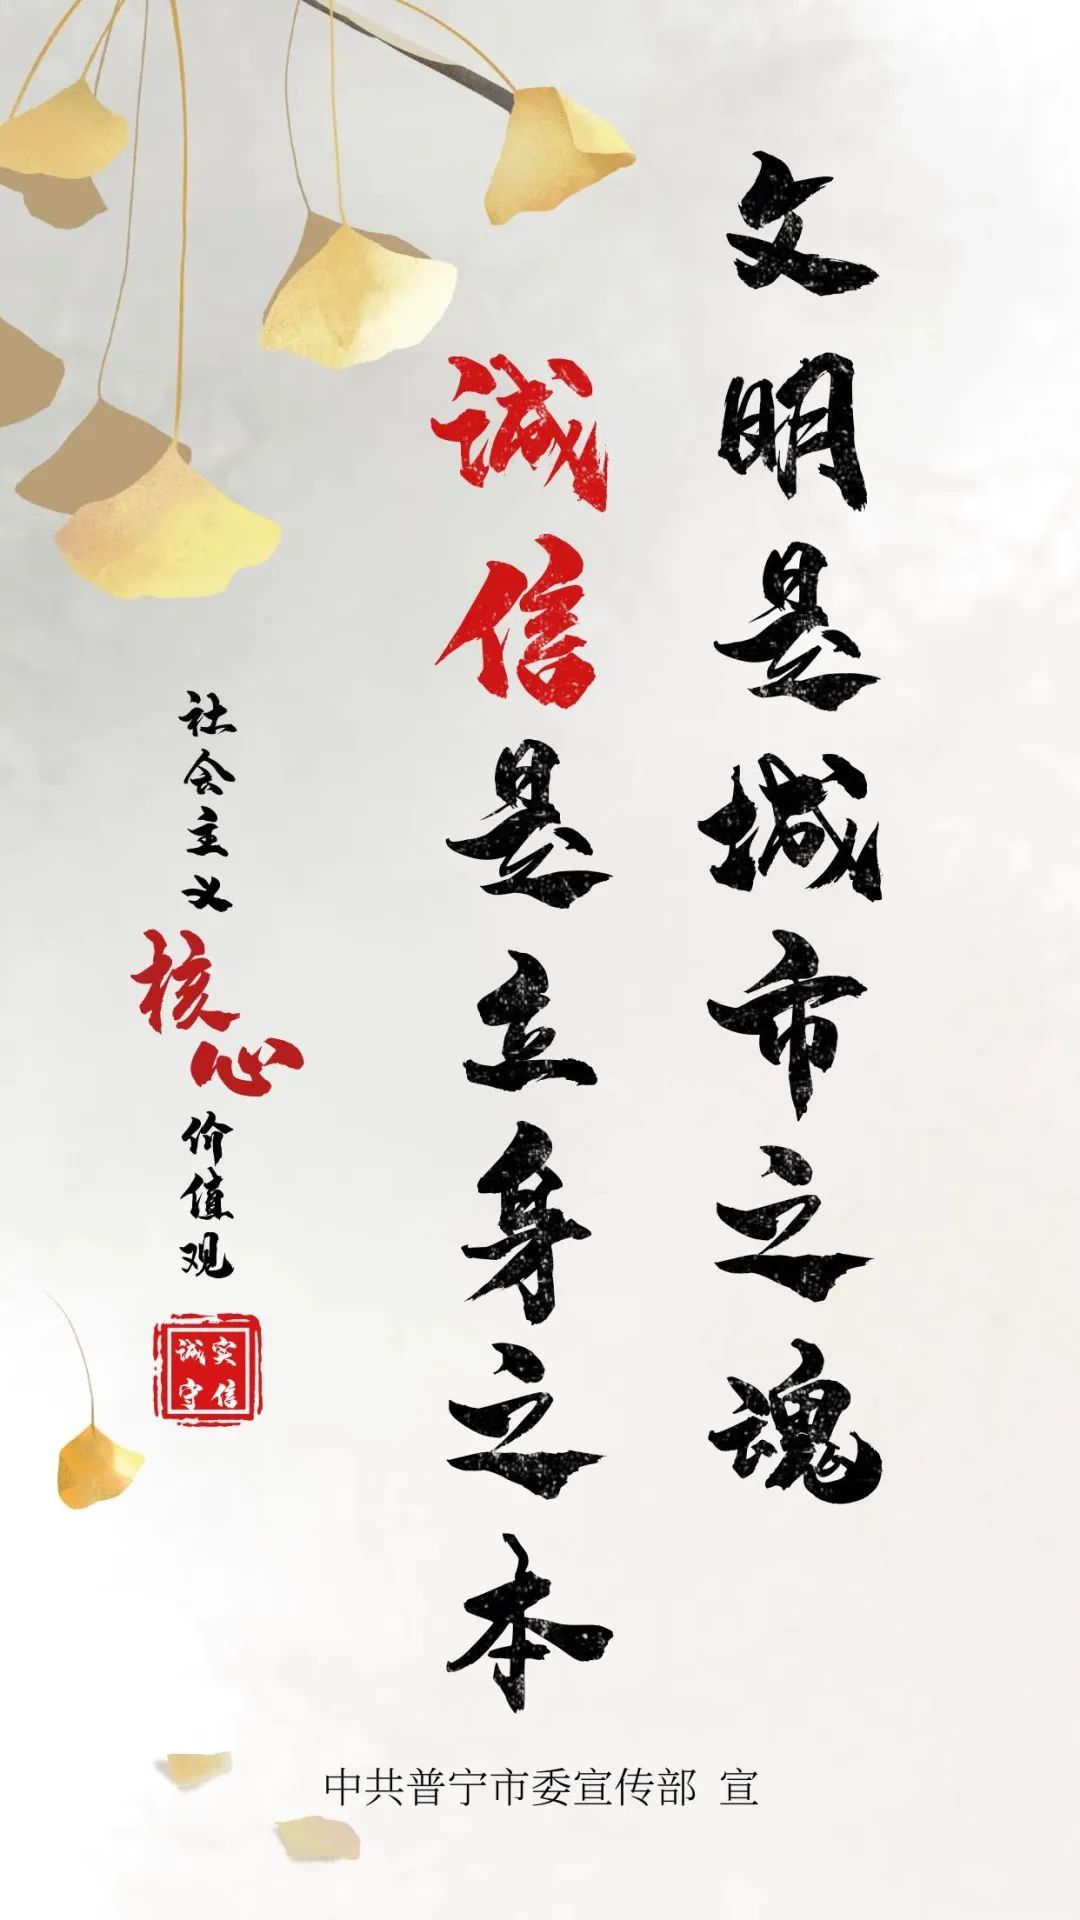 文明是城市之魂
诚信是立身之本
社会主义核心价值观
诚实
守信
中共普宁市委宣传部 宣